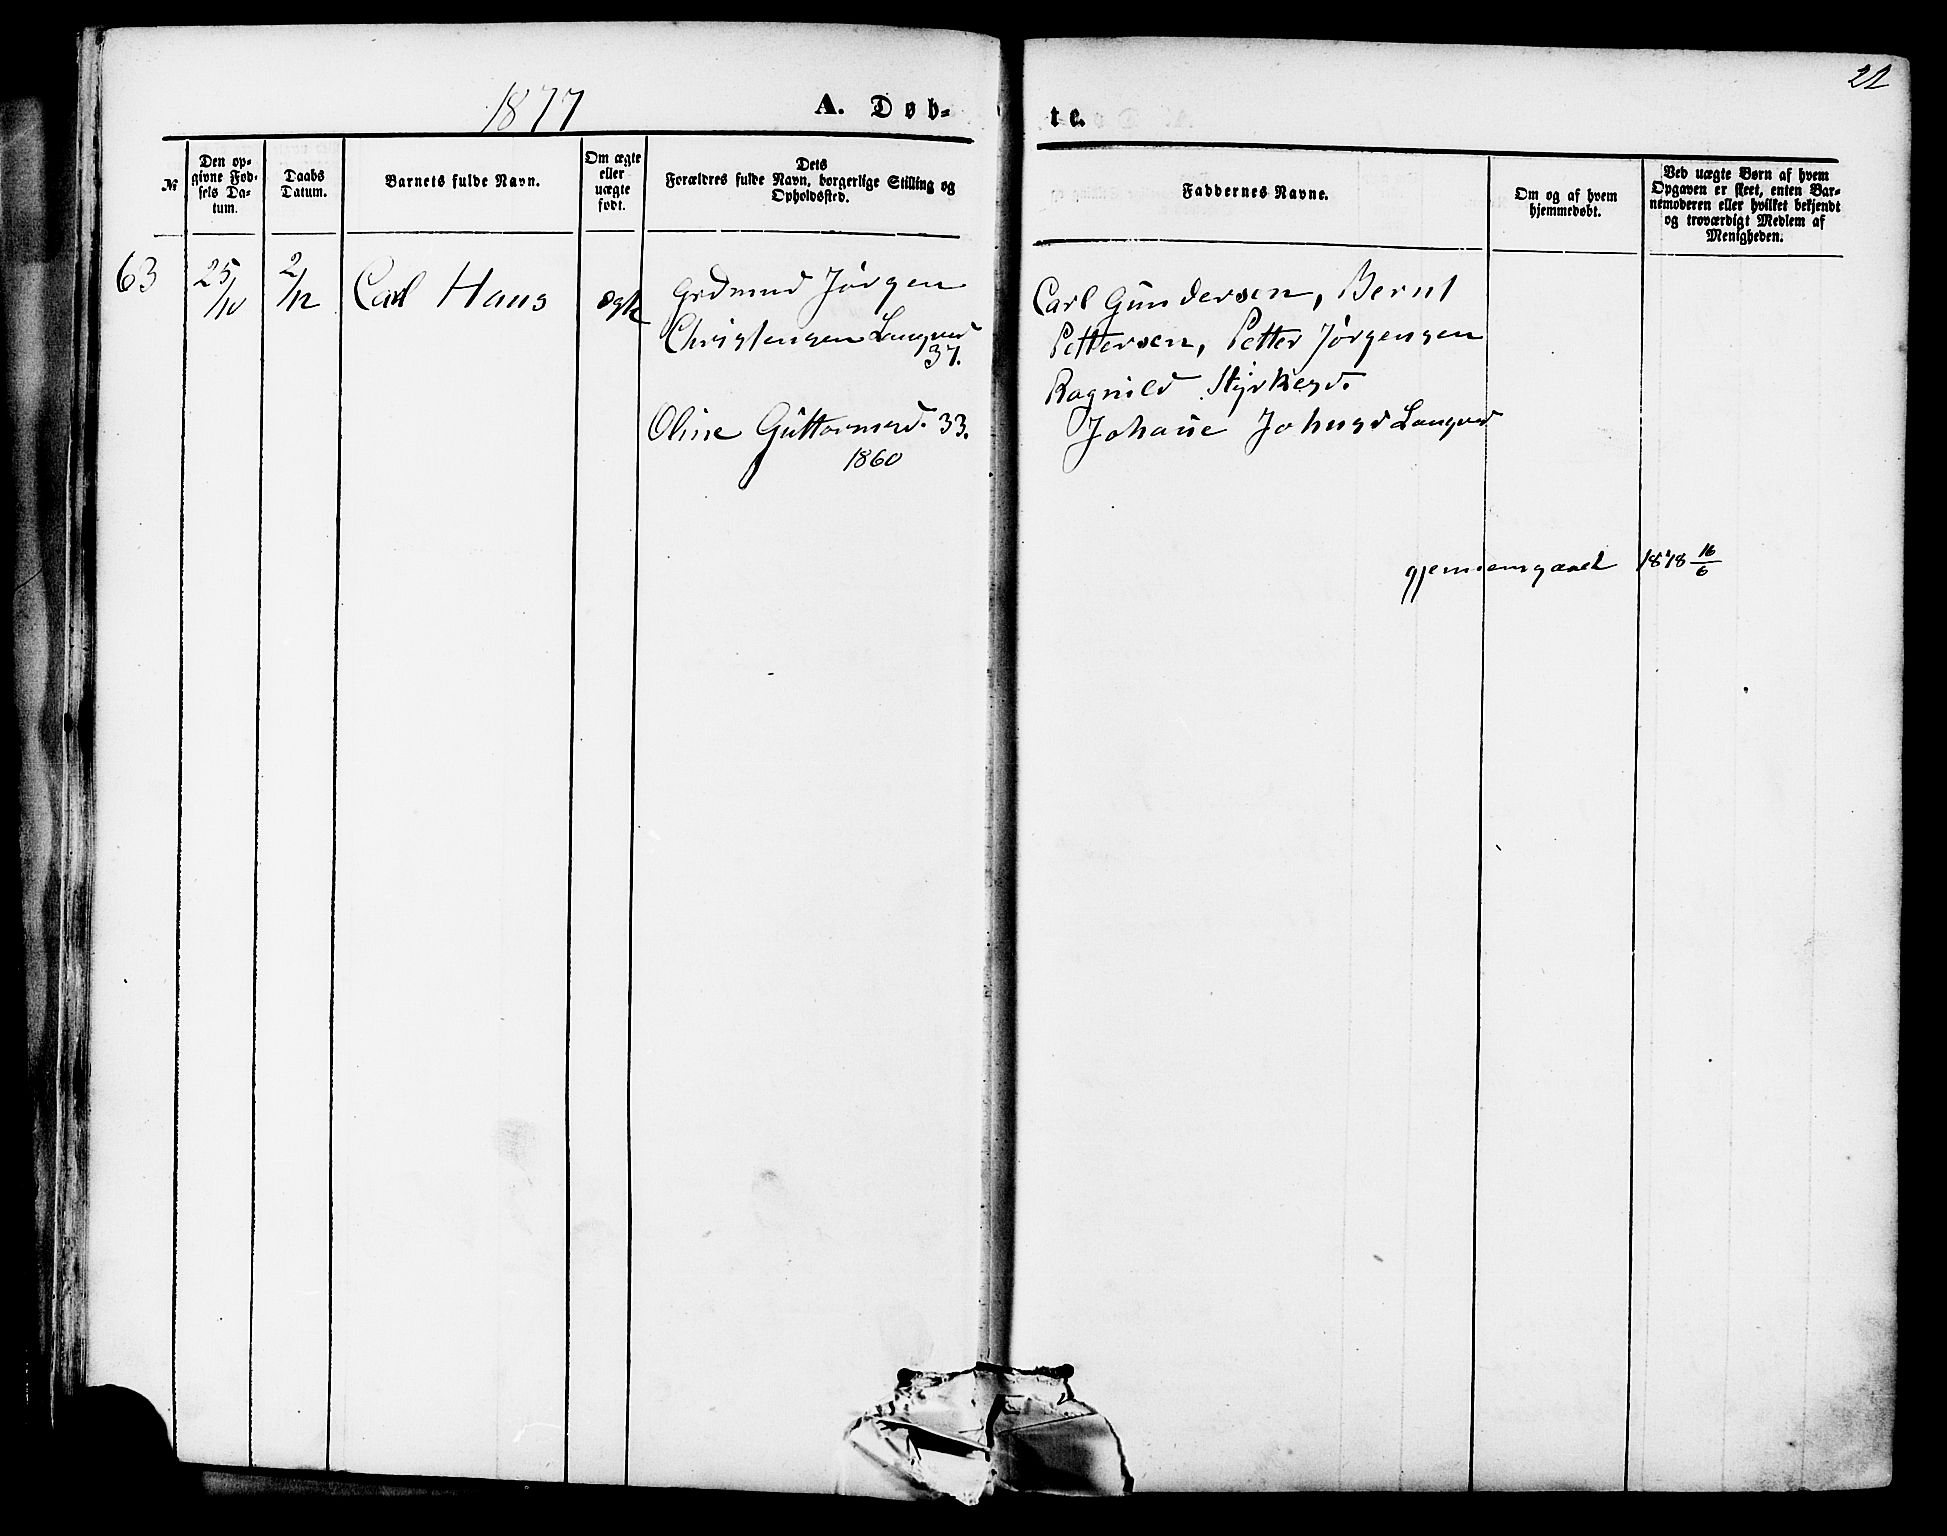 22
1877
A. Døb-
te.
№
Den op-
givne Fød-
sels Da-
tum.
Daabs
Datum.
Barnets fulde Navn.
Om ægte
eller
uægte
født.
Dets
Forældres fulde Navn, borgerlige Stilling og
Opholdssted.
Faddernes Navne.
Om og af hvem
hjemmedøbt.
Ved uægte Børn af hvem
Opgaven er skeet, enten Bar-
nemoderen eller hvilket bekjendt
og troværdigt Medlem af
Menigheden.
63
25/10
2/12
Carl Hans
ægte
Jørgen
Christensen
37.
Oline Guttormsd. 33.
1860
Carl Gundersen, Bernt
Pettersen, Petter Jørgensen
Ragnild Styrkesd.
Johanne Johnsd
gjennemgaaet 1878 16/6